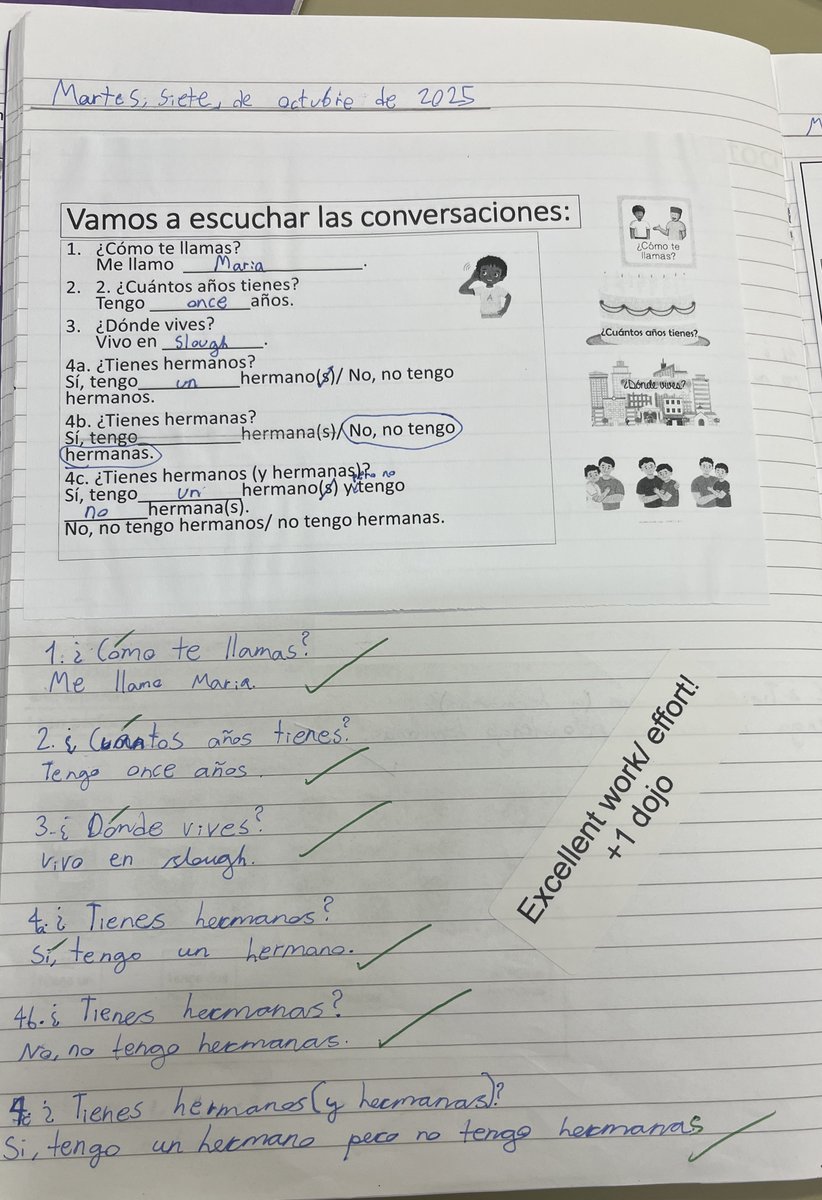 Martes, siete, de octubre de 2025
Vamos a escuchar las conversaciones:
1. ¿Cómo te llamas?
Me llamo Maria.
2. 2. ¿Cuántos años tienes?
Tengo once años.
3. ¿Dónde vives?
Vivo en Slough.
4a. ¿Tienes hermanos?
Sí, tengo un hermano(s)/ No, no tengo
hermanos.
4b. ¿Tienes hermanas?
Sí, tengo________hermana(s)/ No, no tengo
hermanas.
4c. ¿Tienes hermanos (y hermanas)?
pero no
Sí, tengo un hermano(s) y tengo
no hermana(s).
No, no tengo hermanos/ no tengo hermanas.
¿Cómo te
llamas?
¿Cuántos años tienes?
¿Dónde vives?
1. ¿Cómo te llamas?
Me llamo Maria.
2. ¿Cuántos años tienes?
Tengo once años.
3. ¿Dónde vives?
Vivo en slough.
4a. ¿Tienes hermanos?
Sí, tengo un hermano.
4b. ¿Tienes hermanas?
No, no tengo hermanas.
4c. ¿Tienes hermanos (y hermanas)?
Si, tengo un hermano pero no tengo hermanas
Excellent work/ effort!
+1 dojo
M